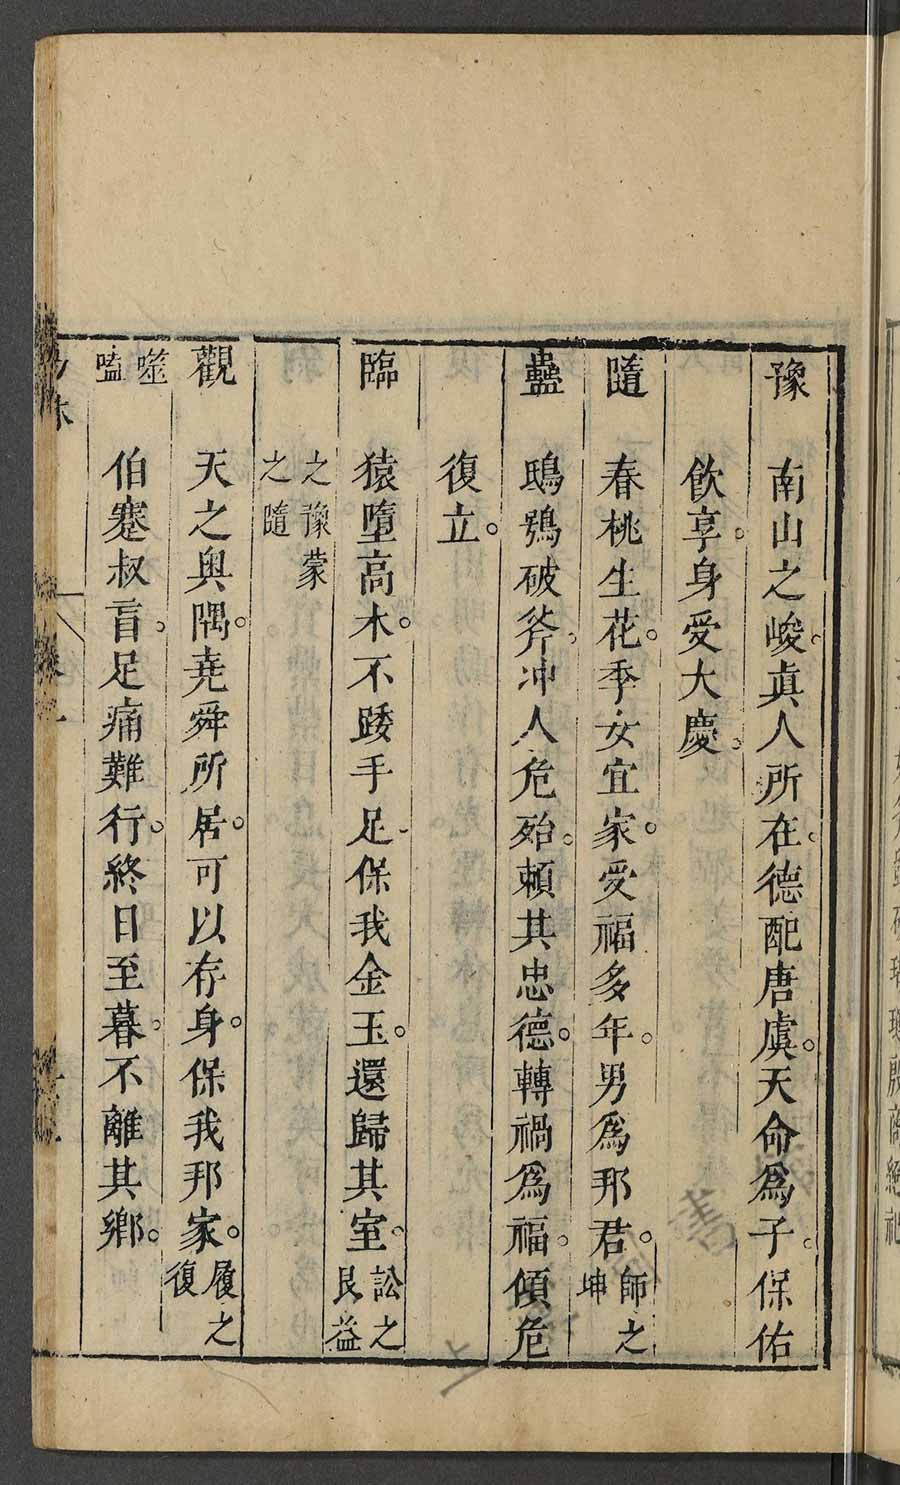 豫 南山之峻。眞人所在。德配唐虞。天命爲子。保佑
飲享。身受大慶。
隨 春桃生花。季女宜家。受福多年。男爲邦君。師之坤
蠱 鴟鴞破斧。冲人危殆。賴其忠德。轉禍爲福。傾危
復立。
臨 猿墮高木。不踒手足。保我金玉。還歸其室。訟之艮益
之豫蒙之隨
觀 天之奧隅。堯舜所居。可以存身。保我邦家。履之復
噬嗑 伯蹇叔盲。足痛難行。終日至暮。不離其鄉。